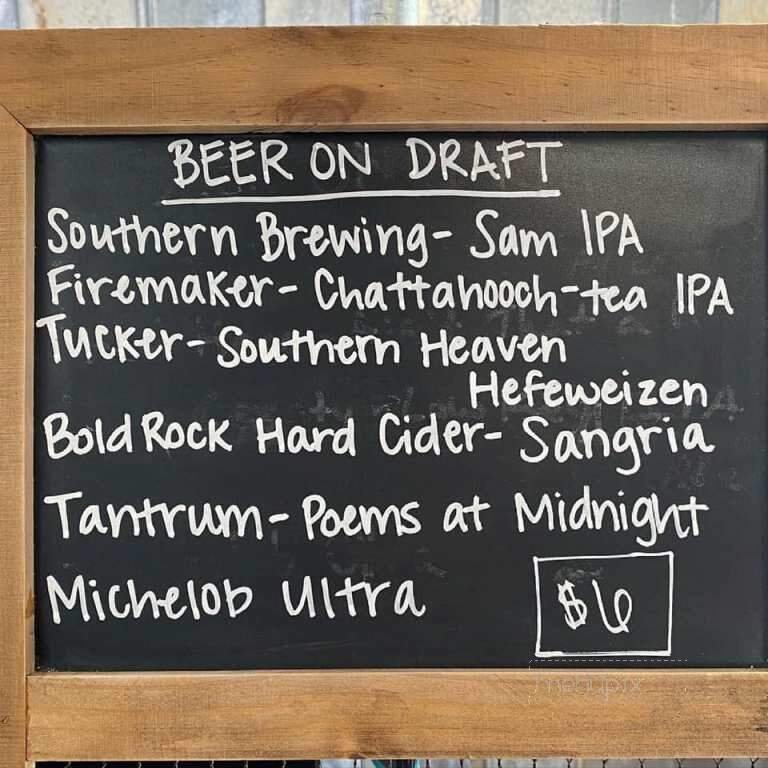 BEER ON DRAFT
Southern Brewing - Sam IPA
Firemaker - Chattahooch-tea IPA
Tucker - Southern Heaven
Hefeweizen
Bold Rock Hard Cider - Sangria
Tantrum - Poems at Midnight
Michelob Ultra
$6
menupix